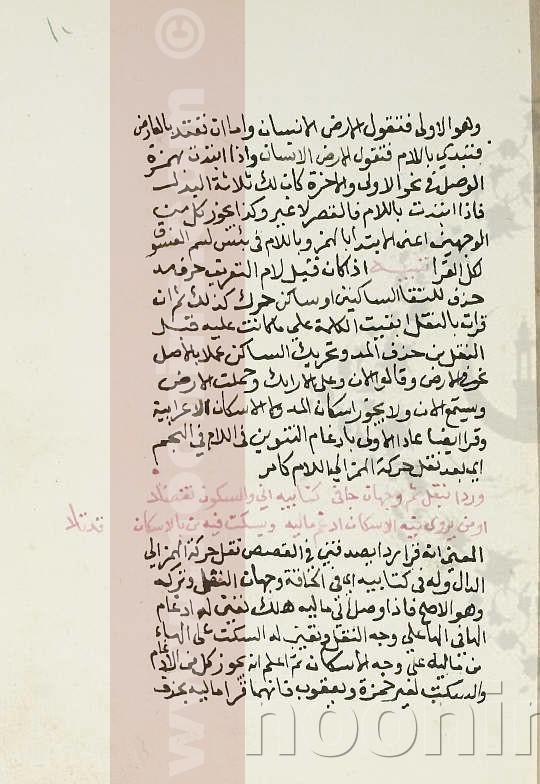 وهو الاولى فتقول الارض الانسان واما ان تعتد بالعارض
فتبتدي باللام فتقول لارض لانسان واذا ابتدت بهمزة
الوصل في نحو الاولى والاخرة كان لك ثلاثة البدل
فاذا ابتدت باللام فالقصر لا غير وكذا يجوز كل من
الوجهين اعنى الابتدا بالهمز وباللام في بئس لسم الفسوق
لكل القرا تنبيه اذا كان قبل لام التعريف حرف مد
حذف للتقا الساكنين او ساكن حرك كذلك ثم ان
قرات بالنقل ابقيت الكلمة علي ما كانت عليه قبل
النقل من حذف المد وتحريك الساكن عملا بالاصل
نحو في الارض وقالوا الان وعلى الارايك وحملت الارض
ويستمع الان ولا يجوز اسكان المد ولا الاسكان الاعرابية
وقرا ايضا عاد الاولى بادغام التنوين في اللام في النجم
اي بعد نقل حركة الهمز الي اللام كما مر
وردا نقل ثم وجهان حاقى كتابيه اني والسكون تفضلا
ومن يروي فيه الاسكان ادغم ماليه ويسكت فيه من بالاسكان قد تلا
المعنى انه قرا ردا يصدقني في القصص نقل حركة الهمز الي
الدال وله في كتابيه اني في الحاقة وجهان النقل وتركه
وهو الاصح فاذا وصل اني ماليه هلك تعين له ادغام
الها في الها علي وجه النقل وتعين له السكت على الهاء
من ماليه علي وجه الاسكان ثم اعلم انه يجوز كل من الادغام
والسكت لغير حمزة ويعقوب فانهما قرا ماليه بحذف
noonin